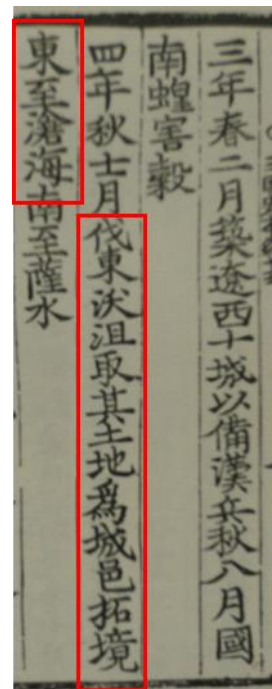 三年春二月築遼西十城以備漢兵秋八月國
南蝗害穀
四年秋七月伐東沃沮取其土地爲城邑拓境
東至滄海南至薩水